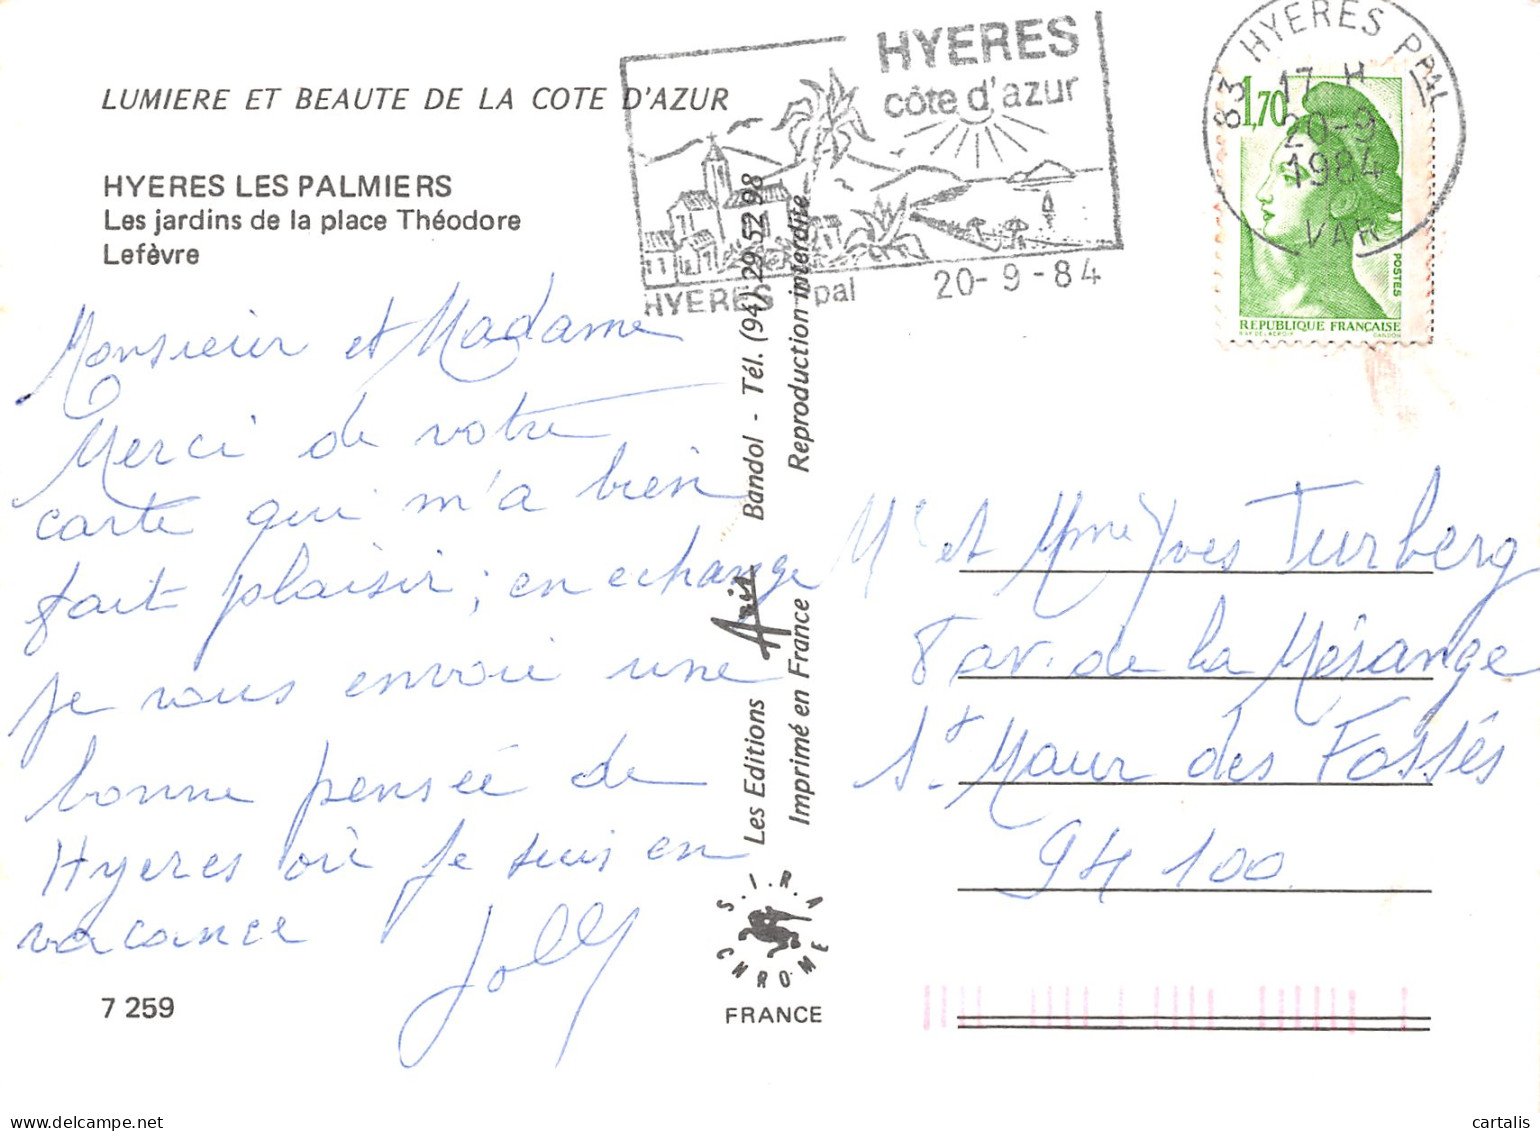 LUMIERE ET BEAUTE DE LA COTE D'AZUR
HYERES LES PALMIERS
Les jardins de la place Théodore
Lefèvre
HYERES
côte d'azur
HYERES ppal
20-9-84
83 HYERES PPAL
17 H
20-9
1984
VAR
1,70
POSTES
REPUBLIQUE FRANÇAISE
Monsieur et Madame
Merci de votre
carte qui m'a bien
fait plaisir ; en echange
je vous envoie une
bonne pensée de
Hyeres où je suis en
vacance
Jolly
7 259
Les Editions Aris Bandol - Tél. (94) 29 52 98
Imprimé en France Reproduction interdite
S.I.R.A
CHROME
FRANCE
Mr et Mme Yves Turberg
8 av. de la Mésange
St Maur des Fossés
94 100
cartalis
cartalis.com